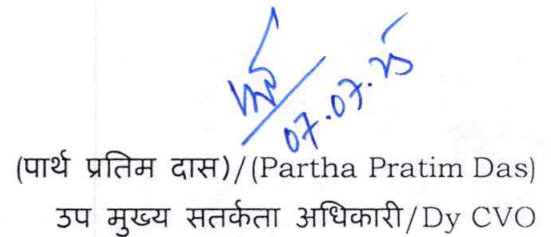 07.07.25
(पार्थ प्रतिम दास)/(Partha Pratim Das)
उप मुख्य सतर्कता अधिकारी/Dy CVO